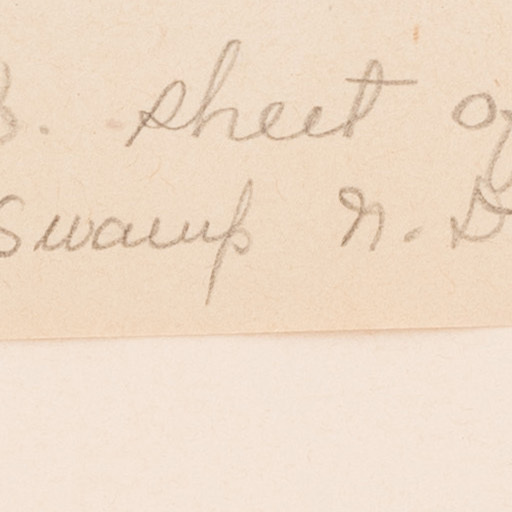 3. sheet of
Swamp N. D